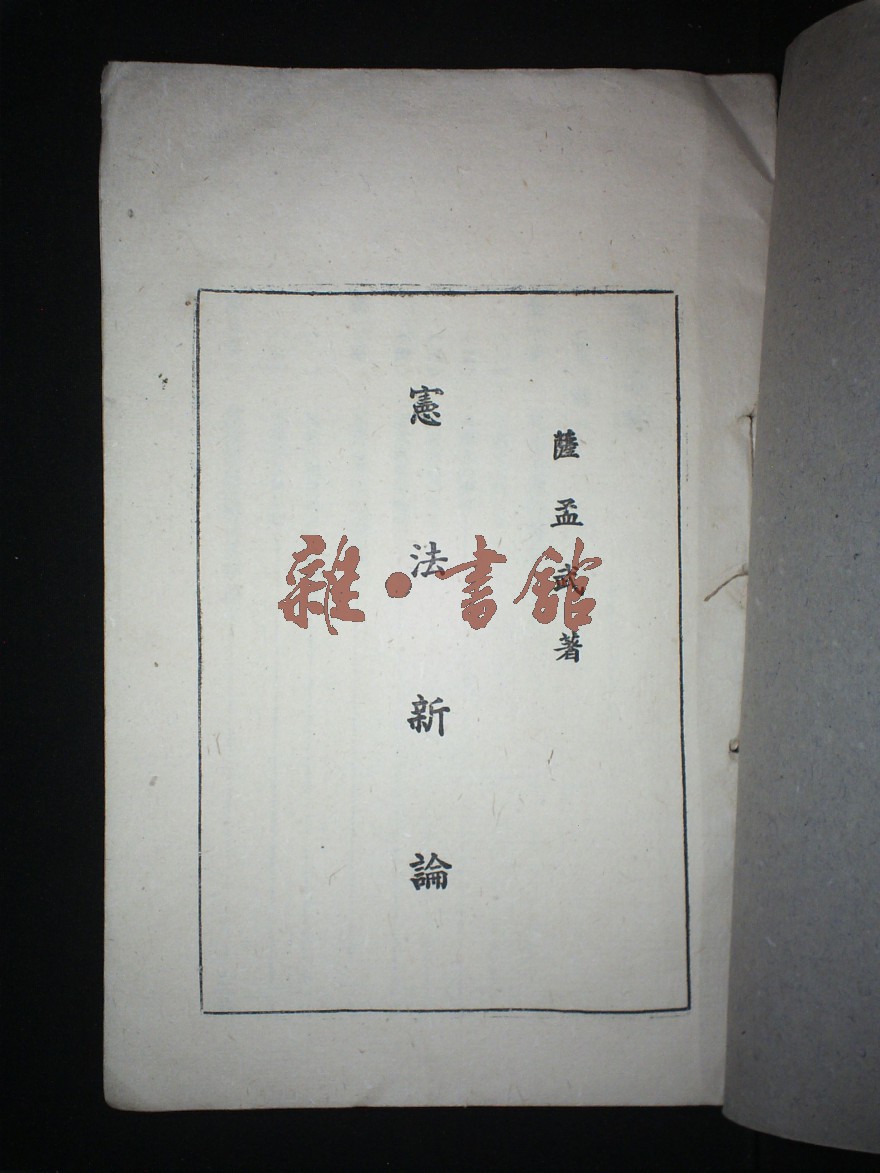 薩孟武著
憲法新論
雜·書館